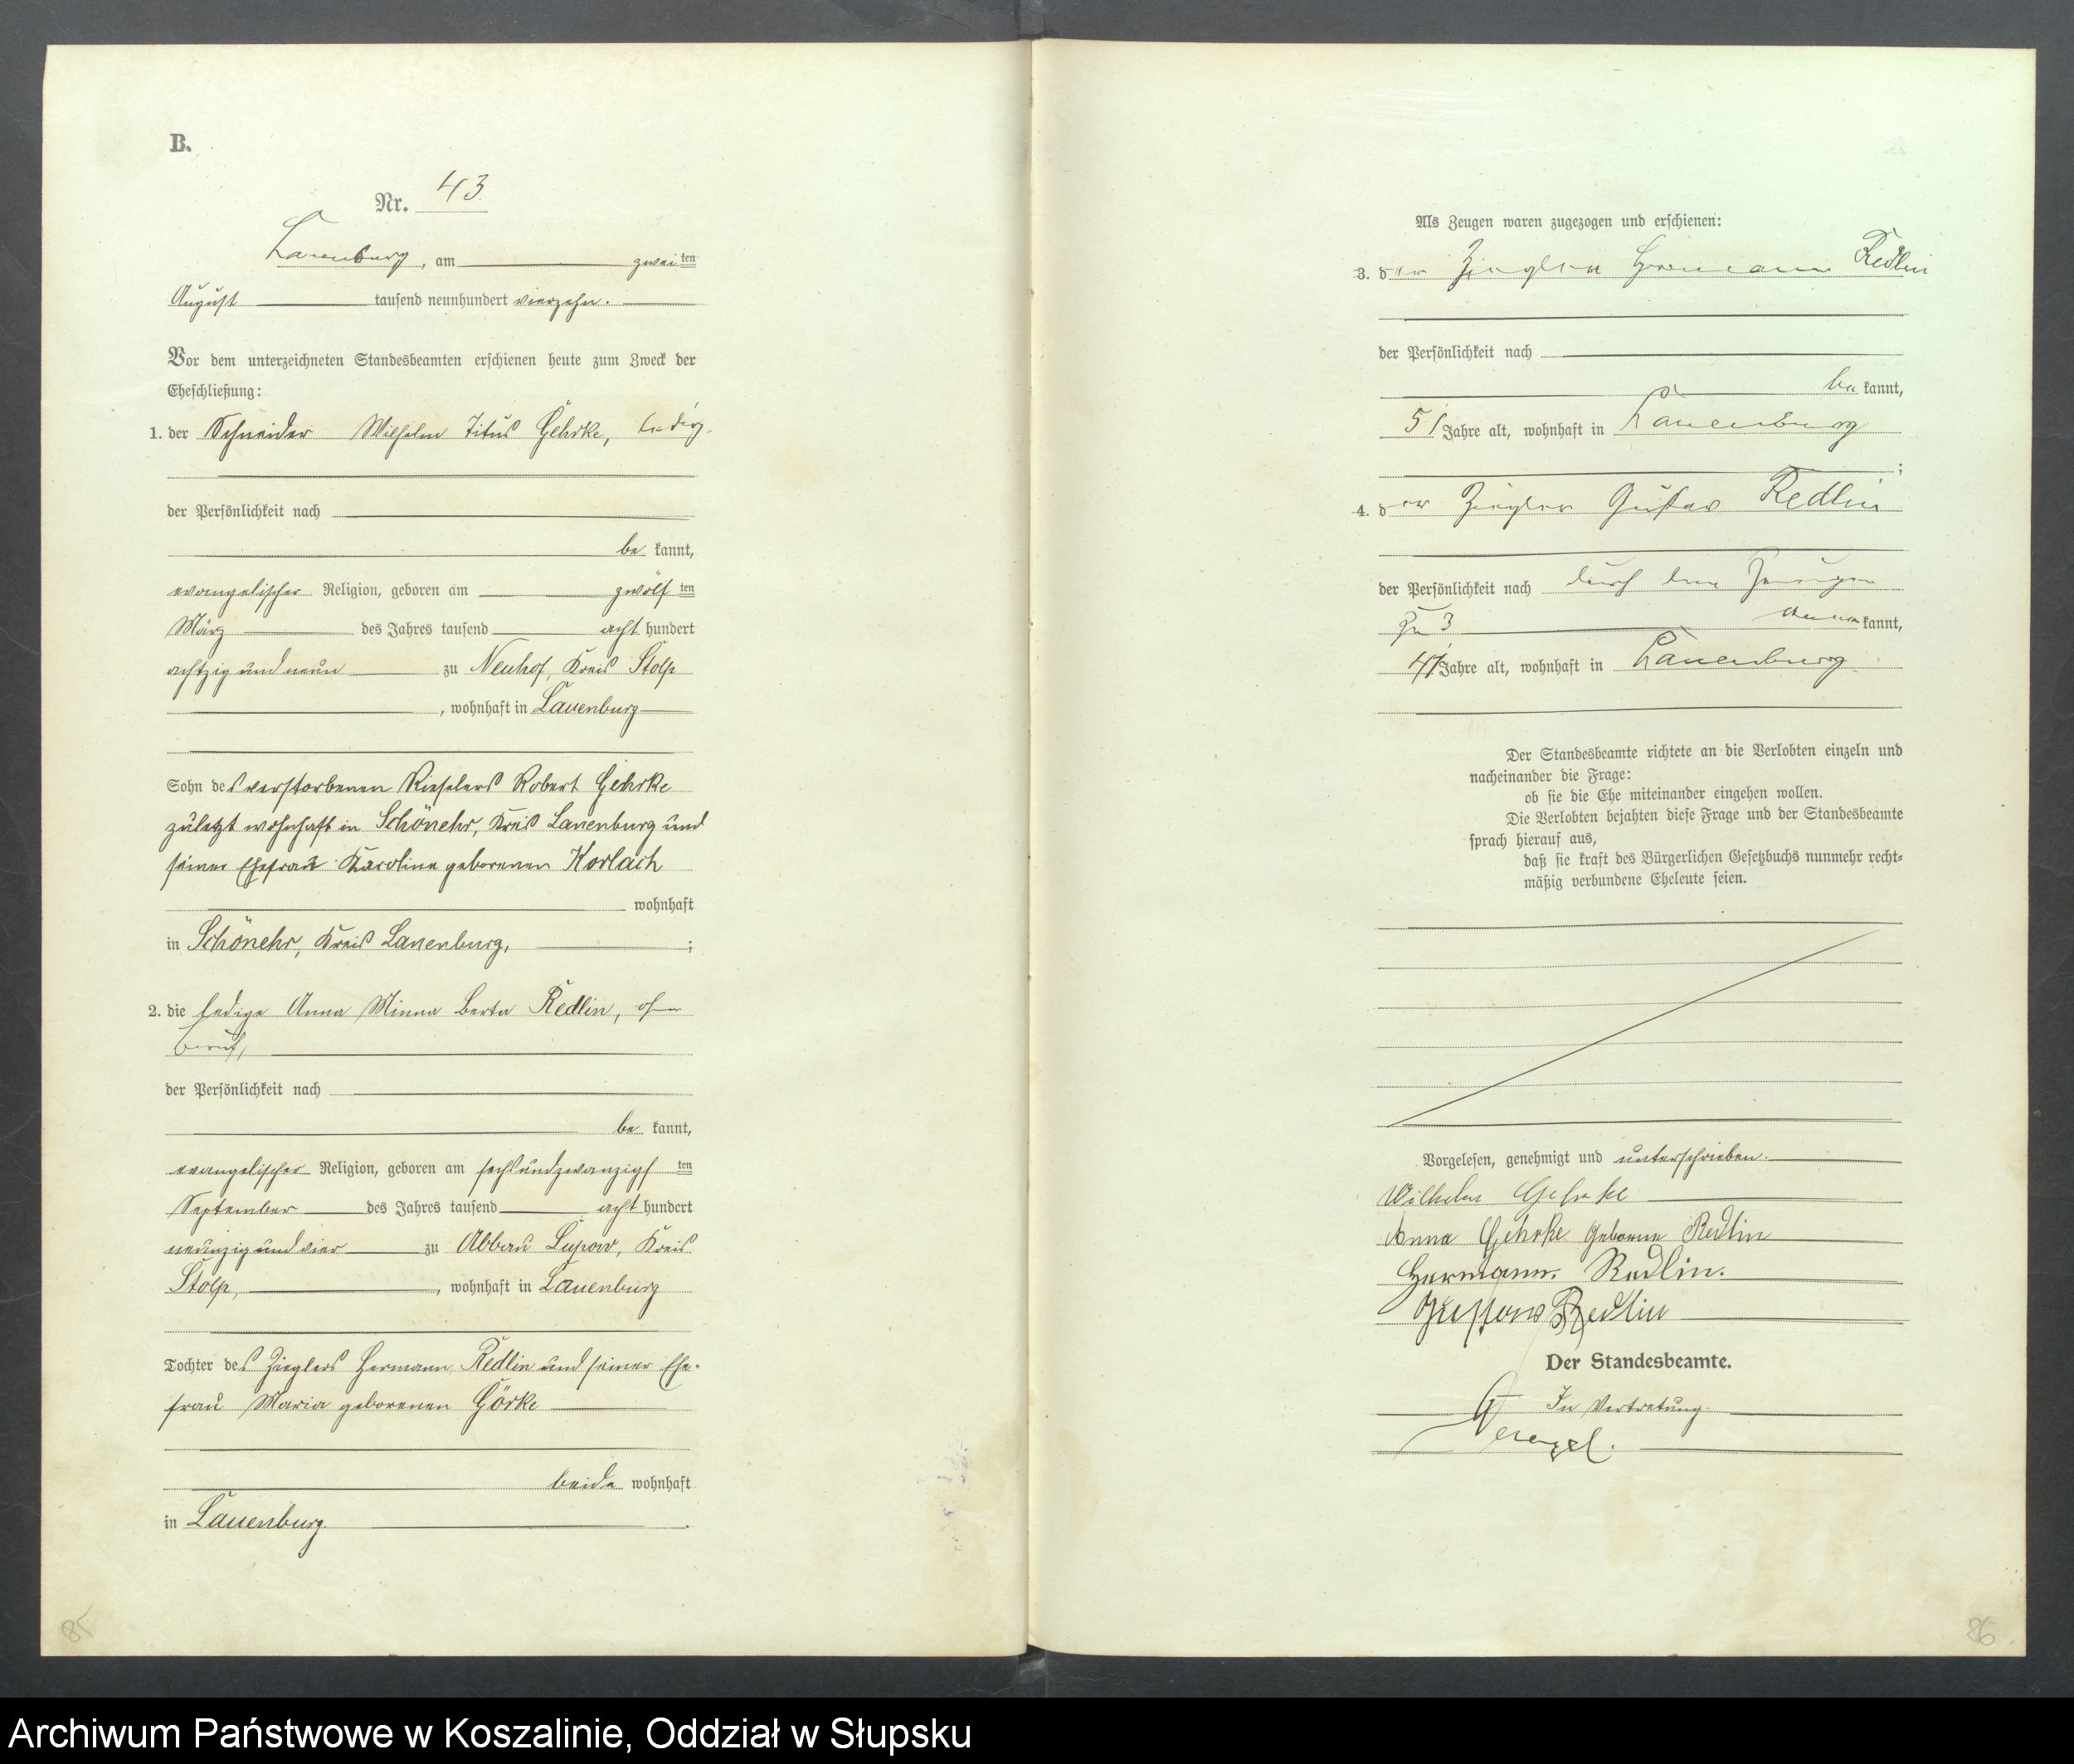 B.
Nr. 43
Lauenburg, am zweiten
August tausend neunhundert vierzehn.
Vor dem unterzeichneten Standesbeamten erschienen heute zum Zweck der
Eheschließung:
1. der Schneider Wilhelm Titus Gehrke, ledig,
der Persönlichkeit nach
be kannt,
evangelischer Religion, geboren am zwölf ten
März des Jahres tausend acht hundert
achtzig und neun zu Neuhof, Kreis Stolp
, wohnhaft in Lauenburg
Sohn des verstorbenen Rieselers Robert Gehrke
zuletzt wohnhaft in Schönehr, Kreis Lauenburg und
seiner Ehefrau Karoline geborenen Korlach
wohnhaft
in Schönehr, Kreis Lauenburg, ;
2. die ledige Anna Minna Berta Redlin, ohne
Beruf,
der Persönlichkeit nach
be kannt,
evangelischer Religion, geboren am sechsundzwanzigs ten
September des Jahres tausend acht hundert
neunzig und vier zu Abbau Lupow, Kreis
Stolp, , wohnhaft in Lauenburg
Tochter des Zieglers Hermann Redlin und seiner Ehe-
frau Maria geborenen Görke
beide wohnhaft
in Lauenburg.
85
Als Zeugen waren zugezogen und erschienen:
3. der Ziegler Hermann Redlin
der Persönlichkeit nach
be kannt,
51 Jahre alt, wohnhaft in Lauenburg
;
4. der Ziegler Gustav Redlin
der Persönlichkeit nach durch den Zeugen
zu 3 aner kannt,
41 Jahre alt, wohnhaft in Lauenburg
Der Standesbeamte richtete an die Verlobten einzeln und
nacheinander die Frage:
ob sie die Ehe miteinander eingehen wollen.
Die Verlobten bejahten diese Frage und der Standesbeamte
sprach hierauf aus,
daß sie kraft des Bürgerlichen Gesetzbuchs nunmehr recht-
mäßig verbundene Eheleute seien.
Vorgelesen, genehmigt und unterschrieben.
Wilhelm Gehrke
Anna Gehrke geborene Redlin
Hermann Redlin.
Gustav Redlin
Der Standesbeamte.
In Vertretung.
86
Archiwum Państwowe w Koszalinie, Oddział w Słupsku